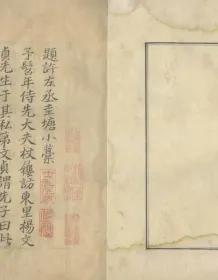 題許左丞圭塘小藁
予髫年侍先大夫杖屨訪東里楊文
貞先生于其私第文貞謂先子曰此